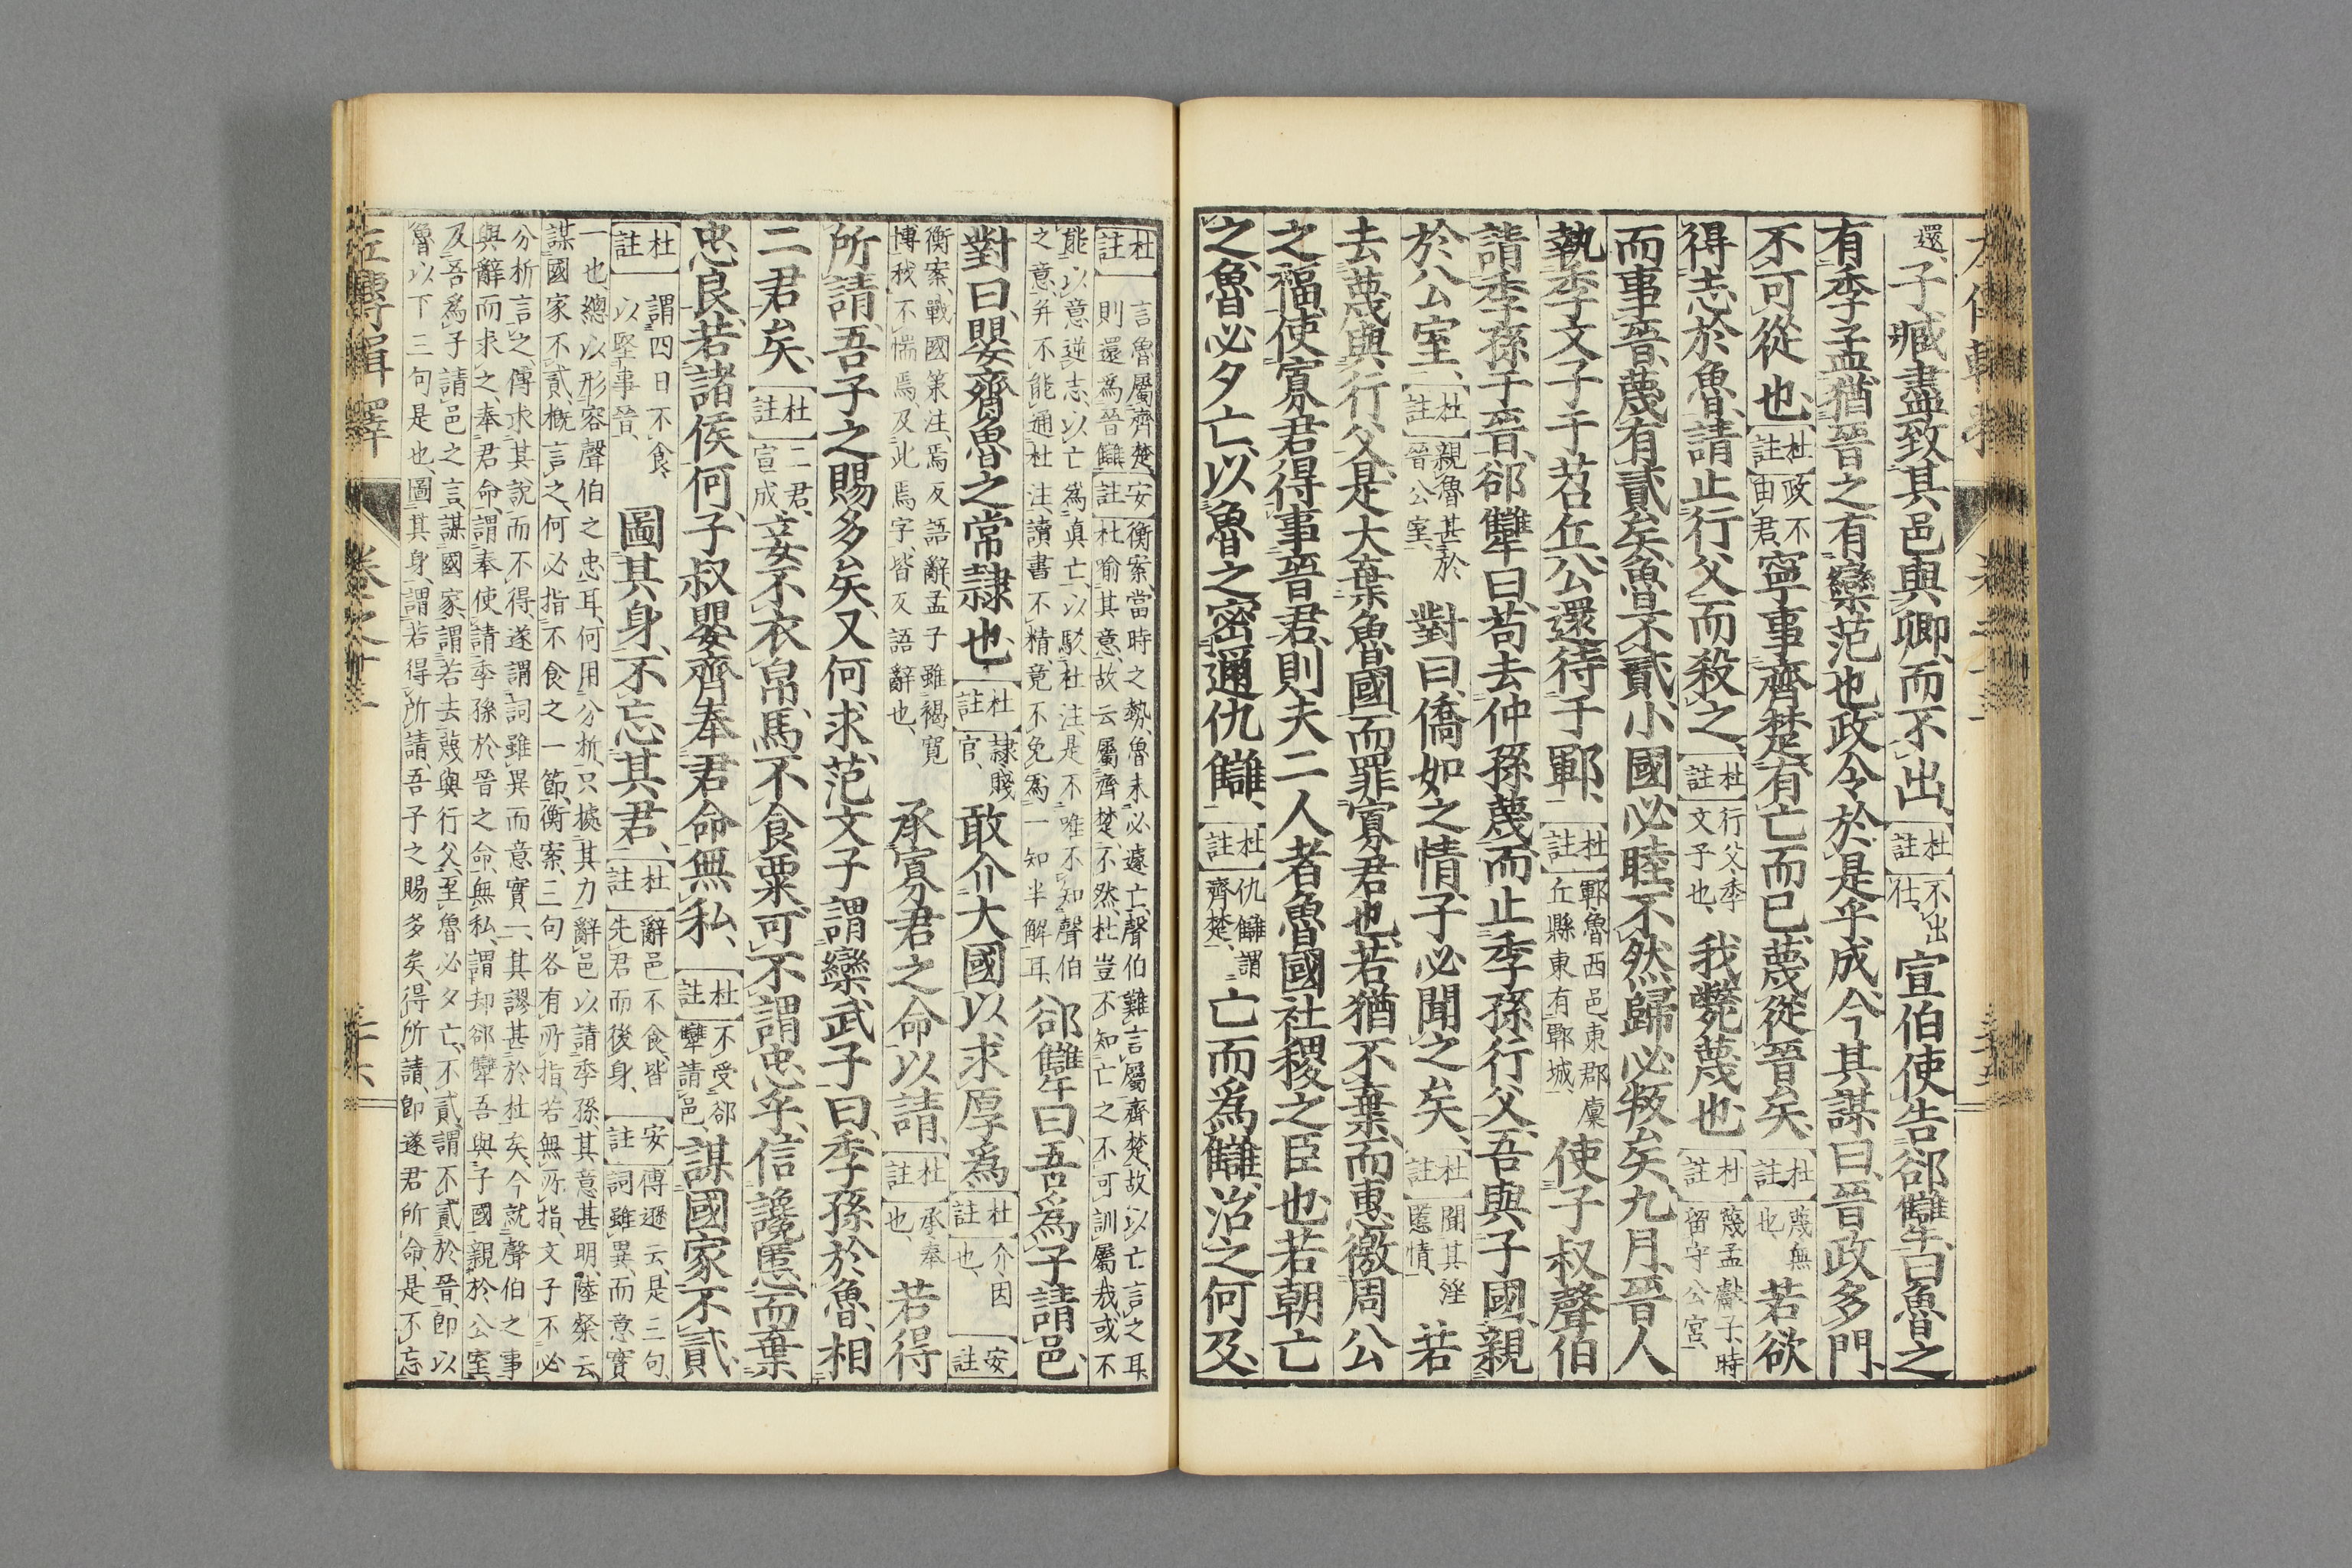 還、子臧盡致其邑與卿、而不出、【杜註】不出仕、宣伯使告郤犨曰、魯之
有季孟、猶晉之有欒范也、政令於是乎成、今其謀曰、晉政多門、
不可從也、【杜註】政不由君、寧事齊楚、有亡而已、蔑從晉矣、【杜註】蔑無也、若欲
得志於魯、請止行父而殺之、【杜註】行父、季文子也、我斃蔑也、【杜註】蔑孟獻子、時留守公宮、
而事晉、蔑有貳矣、魯不貳、小國必睦、不然歸必叛矣、九月、晉人
執季文子于苕丘、公還待于鄆、【杜註】鄆、魯西邑、東郡廩丘縣東有鄆城、使子叔聲伯
請季孫于晉、郤犨曰、苟去仲孫蔑、而止季孫行父、吾與子國、親
於公室、【杜註】親魯甚於晉公室、對曰、僑如之情、子必聞之矣、【杜註】聞其淫慝情、若
去蔑與行父、是大棄魯國、而罪寡君也、若猶不棄、而惠徼周公
之福、使寡君得事晉君、則夫二人者、魯國社稷之臣也、若朝亡
之、魯必夕亡、以魯之密邇仇讎、【杜註】仇讎、謂齊楚、亡而為讎、治之何及、
【杜註】言魯屬齊楚、則還為晉讎、【安註】衡案、當時之勢、魯未必遽亡、聲伯難言屬齊楚、故以亡言之耳、杜喻其意、故云屬齊楚、不然、杜豈不知亡之不可訓屬哉、或不
能以意逆志、以亡為真亡、以駁杜注、是不唯不知聲伯之意、并不能通杜注、讀書不精、竟不免為一知半解耳、郤犨曰、吾為子請邑、
對曰、嬰齊魯之常隸也、【杜註】隸、賤官、敢介大國以求厚焉、【杜註】介、因也、【安註】
衡案、戰國策注、焉反語辭、孟子雖褐寬博、我不惴焉、及此焉字、皆反語辭也、承寡君之命以請、【杜註】承奉也、若得
所請、吾子之賜多矣、又何求、范文子謂欒武子曰、季孫於魯、相
二君矣、【杜註】二君、宣成、妾不衣帛、馬不食粟、可不謂忠乎、信讒慝而棄
忠良、若諸侯何、子叔嬰齊奉君命無私、【杜註】不受郤犨請邑、謀國家不貳、
【杜註】謂四日不食、以堅事晉、圖其身、不忘其君、【杜註】辭邑不食、皆先君而後身、【安註】傅遜云、是三句、詞雖異、而意實
一也、總以形容聲伯之忠耳、何用分析、只據其力辭邑以請季孫、其意甚明、陸粲云、謀國家不貳、概言之、何必指不食之一節、衡案、三句各有所指、若無所指、文子不必
分析言之、傅求其說而不得、遂謂詞雖異而意實一、其謬甚於杜矣、今就聲伯之事與辭而求之、奉君命、謂奉使請季孫於晉之命、無私、謂却郤犨吾與子國親於公室、
及吾為子請邑之言、謀國家、謂若去蔑與行父至魯必夕亡、不貳、謂不貳於晉、即以魯以下三句是也、圖其身、謂若得所請、吾子之賜多矣、得所請、即遂君所命、是不忘
左傳輯釋 卷之十三